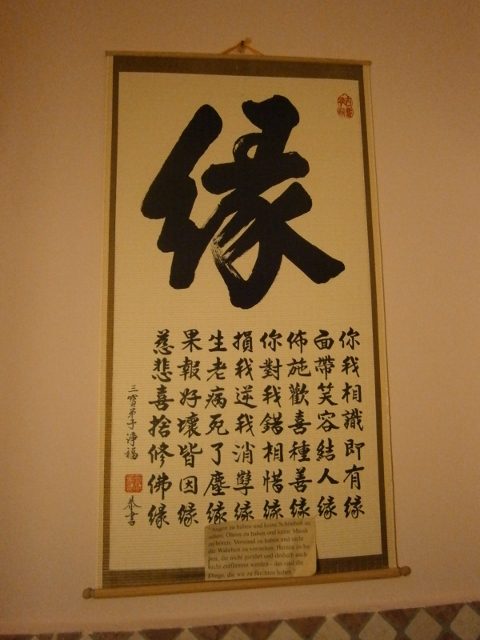 緣
你我相識即有緣
面帶笑容結人緣
佈施歡喜種善緣
你對我錯相惜緣
損我逆我消孽緣
生老病死了塵緣
果報好壞皆因緣
慈悲喜捨修佛緣
三寶弟子淨福
恭書
Augen zu haben und keine Schönheit zu
sehen; Ohren zu haben und keine Musik
zu hören; Verstand zu haben und nicht
die Wahrheit zu verstehen; Herzen zu ha-
ben, die nicht gerührt und deshalb auch
nicht entflammt werden - das sind die
Dinge, die wir zu fürchten haben.